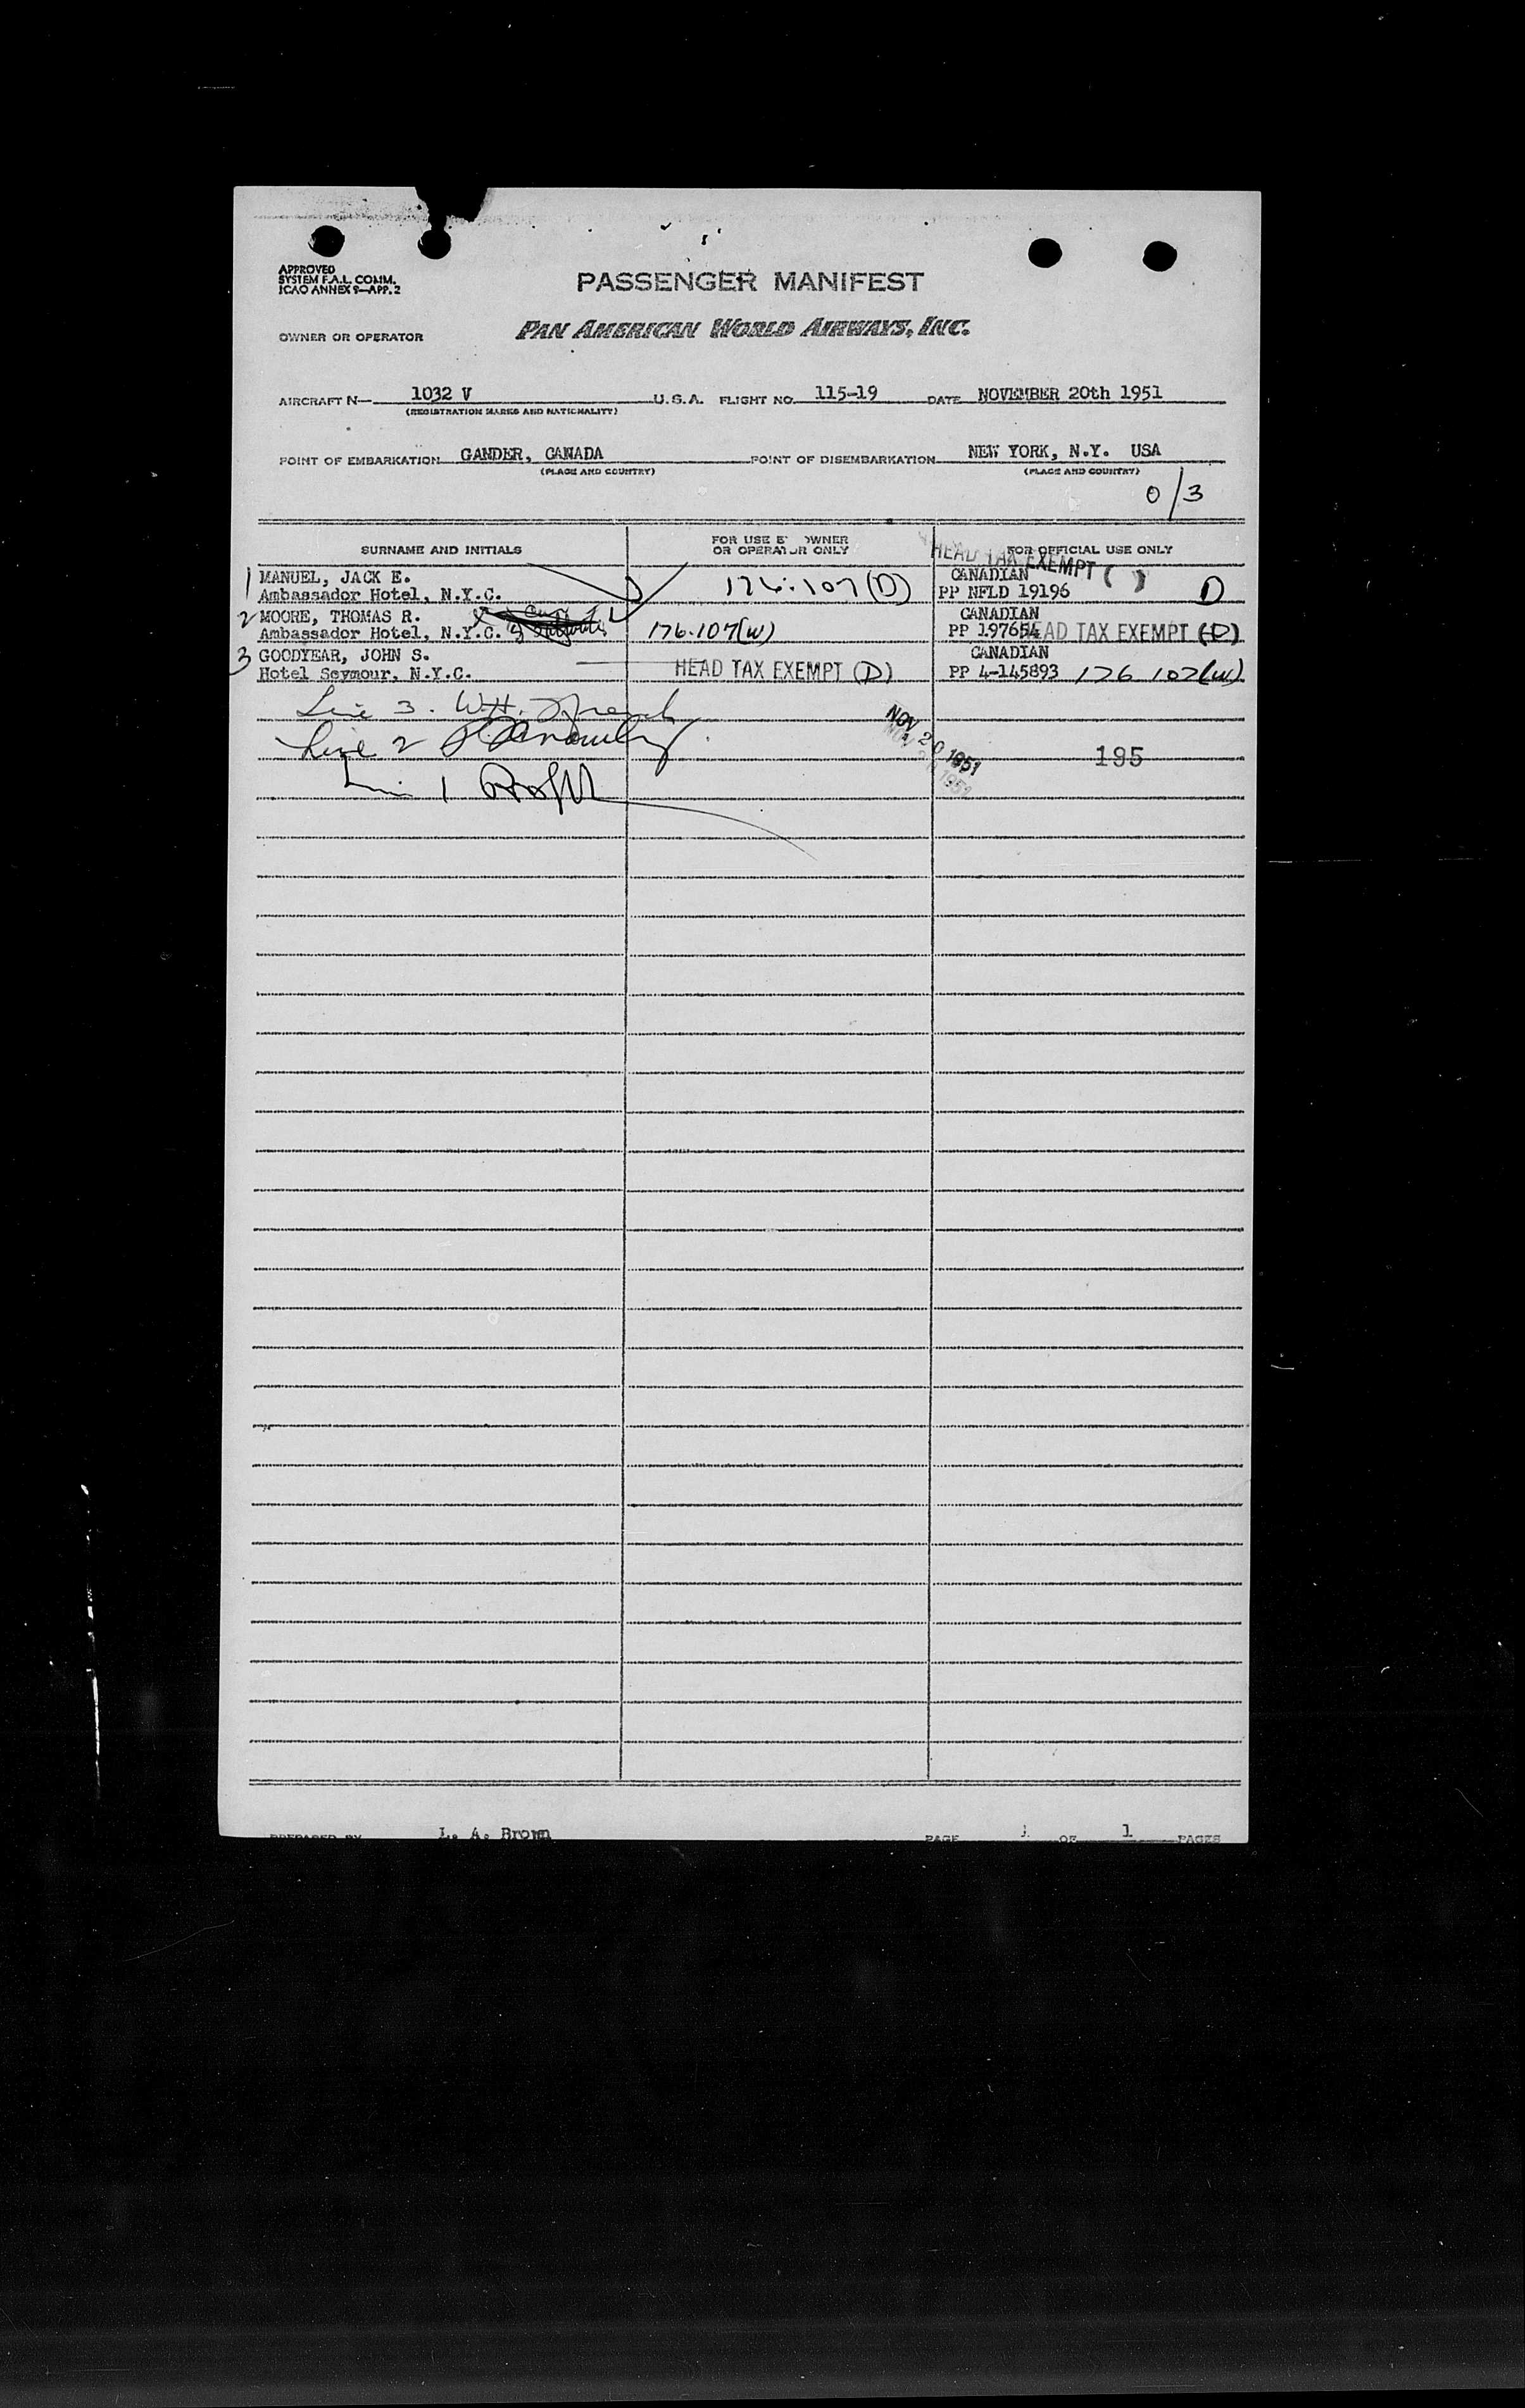 APPROVED
SYSTEM F.A.L. COMM.
ICAO ANNEX 9—APP. 2
PASSENGER MANIFEST
OWNER OR OPERATOR
PAN AMERICAN WORLD AIRWAYS, INC.
AIRCRAFT N— 1032 V U.S.A. FLIGHT NO. 115-19 DATE NOVEMBER 20th 1951
(REGISTRATION MARKS AND NATIONALITY)
POINT OF EMBARKATION GANDER, CANADA POINT OF DISEMBARKATION NEW YORK, N.Y. USA
(PLACE AND COUNTRY) (PLACE AND COUNTRY)
0/3
SURNAME AND INITIALS FOR USE BY OWNER OR OPERATOR ONLY FOR OFFICIAL USE ONLY
HEAD TAX EXEMPT ( )
1 MANUEL, JACK E. CANADIAN
Ambassador Hotel, N.Y.C. 176.107(D) PP NFLD 19196 D
2 MOORE, THOMAS R. CANADIAN
Ambassador Hotel, N.Y.C. 176.107(W) PP 197654 HEAD TAX EXEMPT (D)
3 GOODYEAR, JOHN S. CANADIAN
Hotel Seymour, N.Y.C. HEAD TAX EXEMPT (D) PP 4-145893 176 107(W)
Line 3. W.H.
Line 2
NOV 20 1951
NOV 20 1951
195
Line 1
PREPARED BY L. A. Brown PAGE 1 OF 1 PAGES